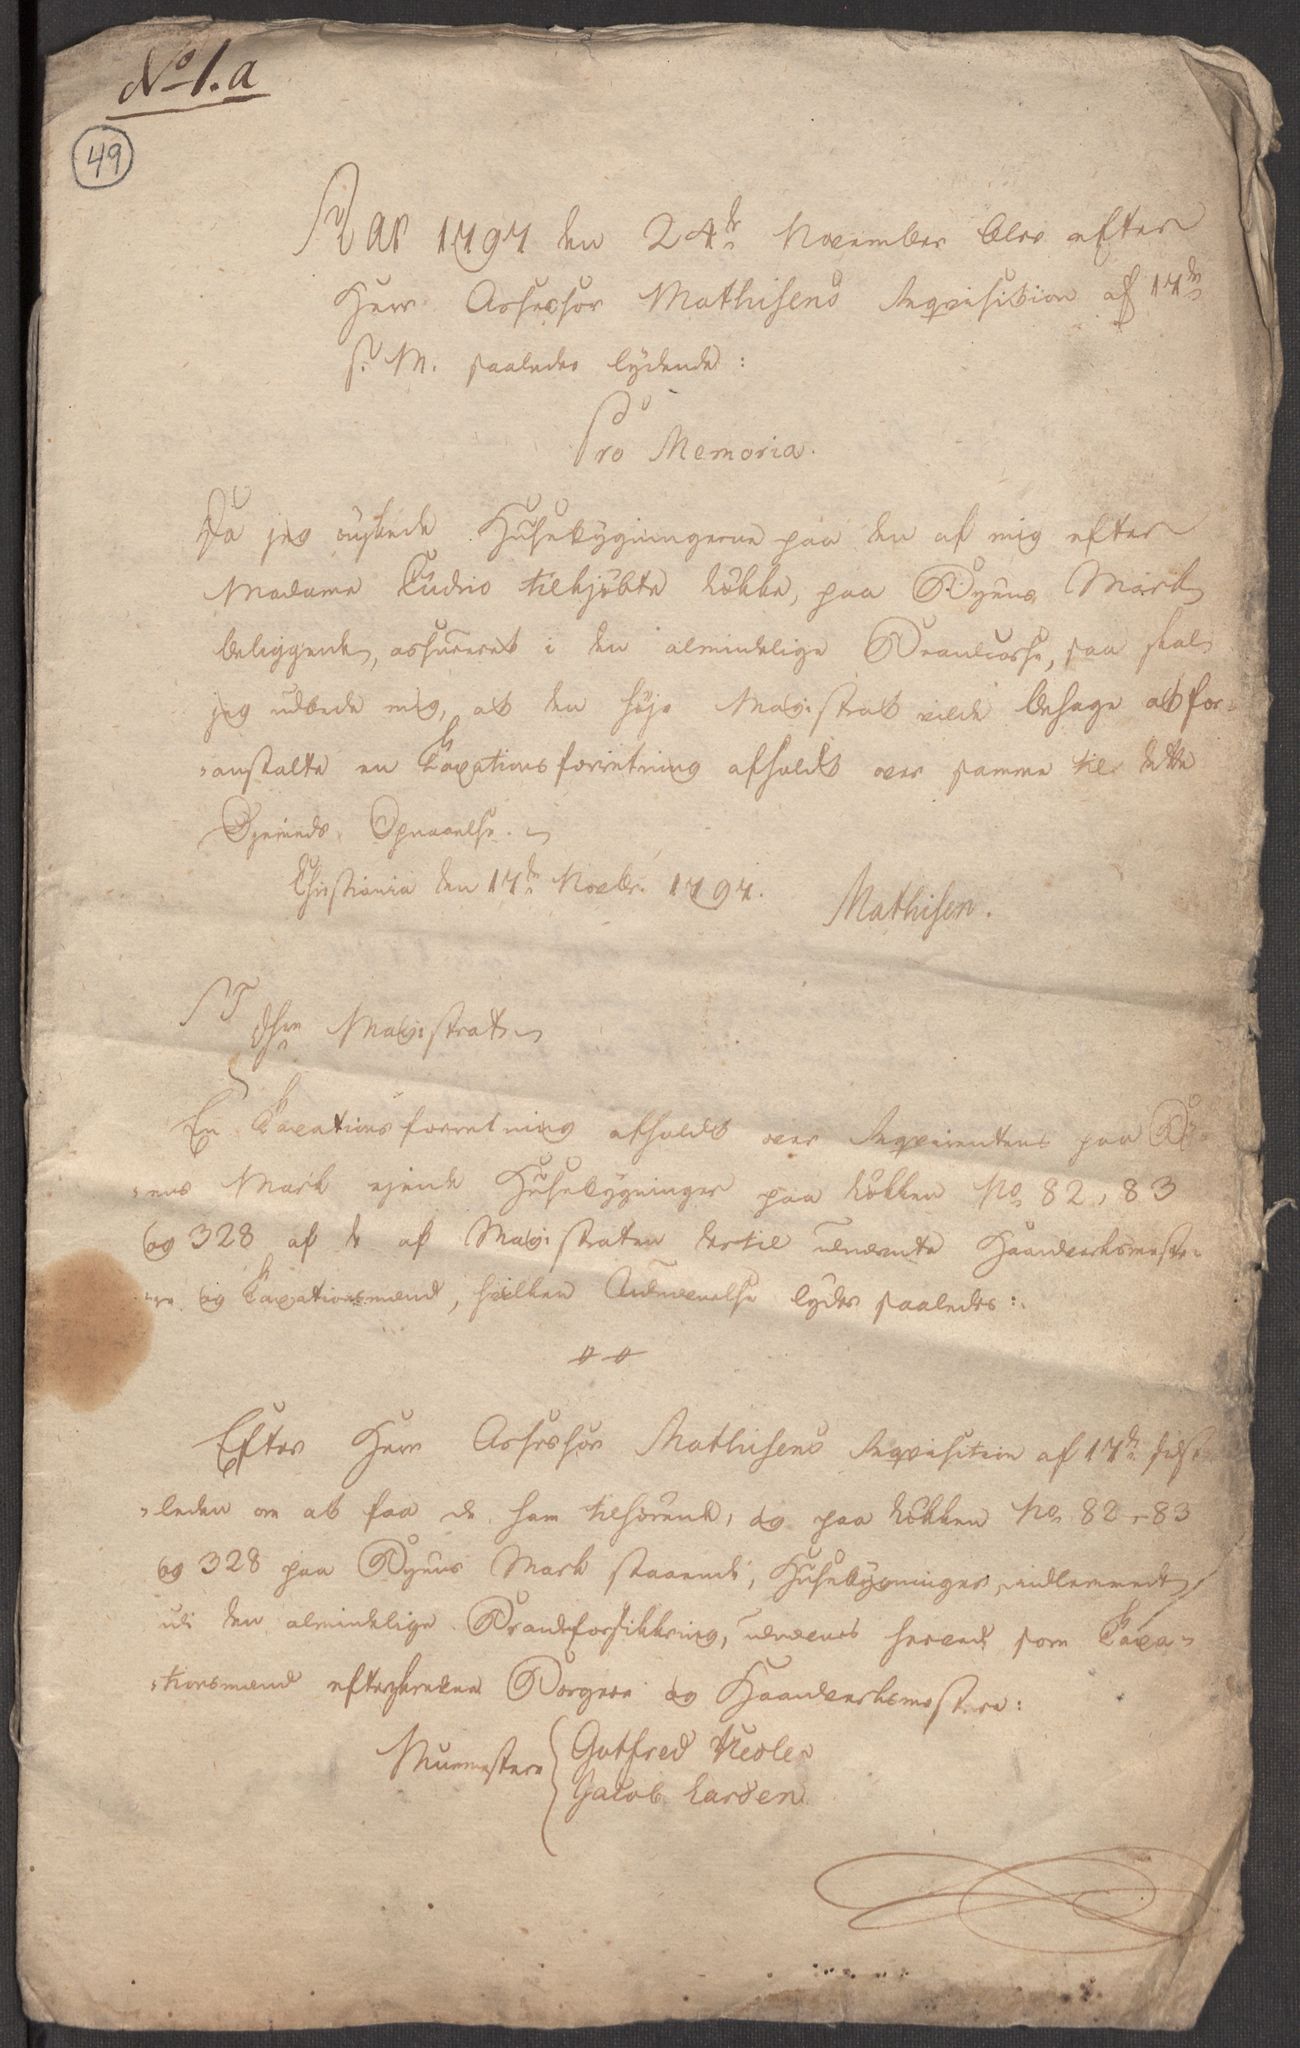 No 1.a
49
Aar 1797 den 24de November blev efter
Herr Assessor Mathisens Reqvisition af 17de
s. M. saaledes lydende:
Pro Memoria.
Da jeg ønskede Huusebygningerne paa den af mig efter
Madame tilkjøbte Løkke, paa Byens Mark
beliggende, assureret i den almindelige Brandcasse, saa skal
jeg udbede mig, at den høje Magistrat vilde behage at for-
-anstalte en Taxationsforretning afholdt over samme til dette
Øjemeds Opnaaelse.
Christiania den 17de Novbr. 1797. Mathisen.
ST
Magistrat
En Taxationsforretning afholdt over Reqvirentens paa By-
-ens Mark ejende Huusebygninger paa Løkken No 82, 83
og 328 af de af Magistraten dertil udnævnte Haandverksmeste-
-re og Taxationsmænd, hvilken Udnævnelse lyder saaledes:
Efter Herr Assessor Mathisens Reqvisition af 17de sidst-
-leden om at faa de ham tilhørende, og paa Løkken No 82, 83
og 328 paa Byens Mark staaende, Huusebygninger indlemmede
udi den almindelige Brandforsikkring, udnævnes herved som Taxa-
-tionsmænd efterskrevne Borgere og Haandverksmestere:
Muurmestere { Gotfred
Jacob Larsen